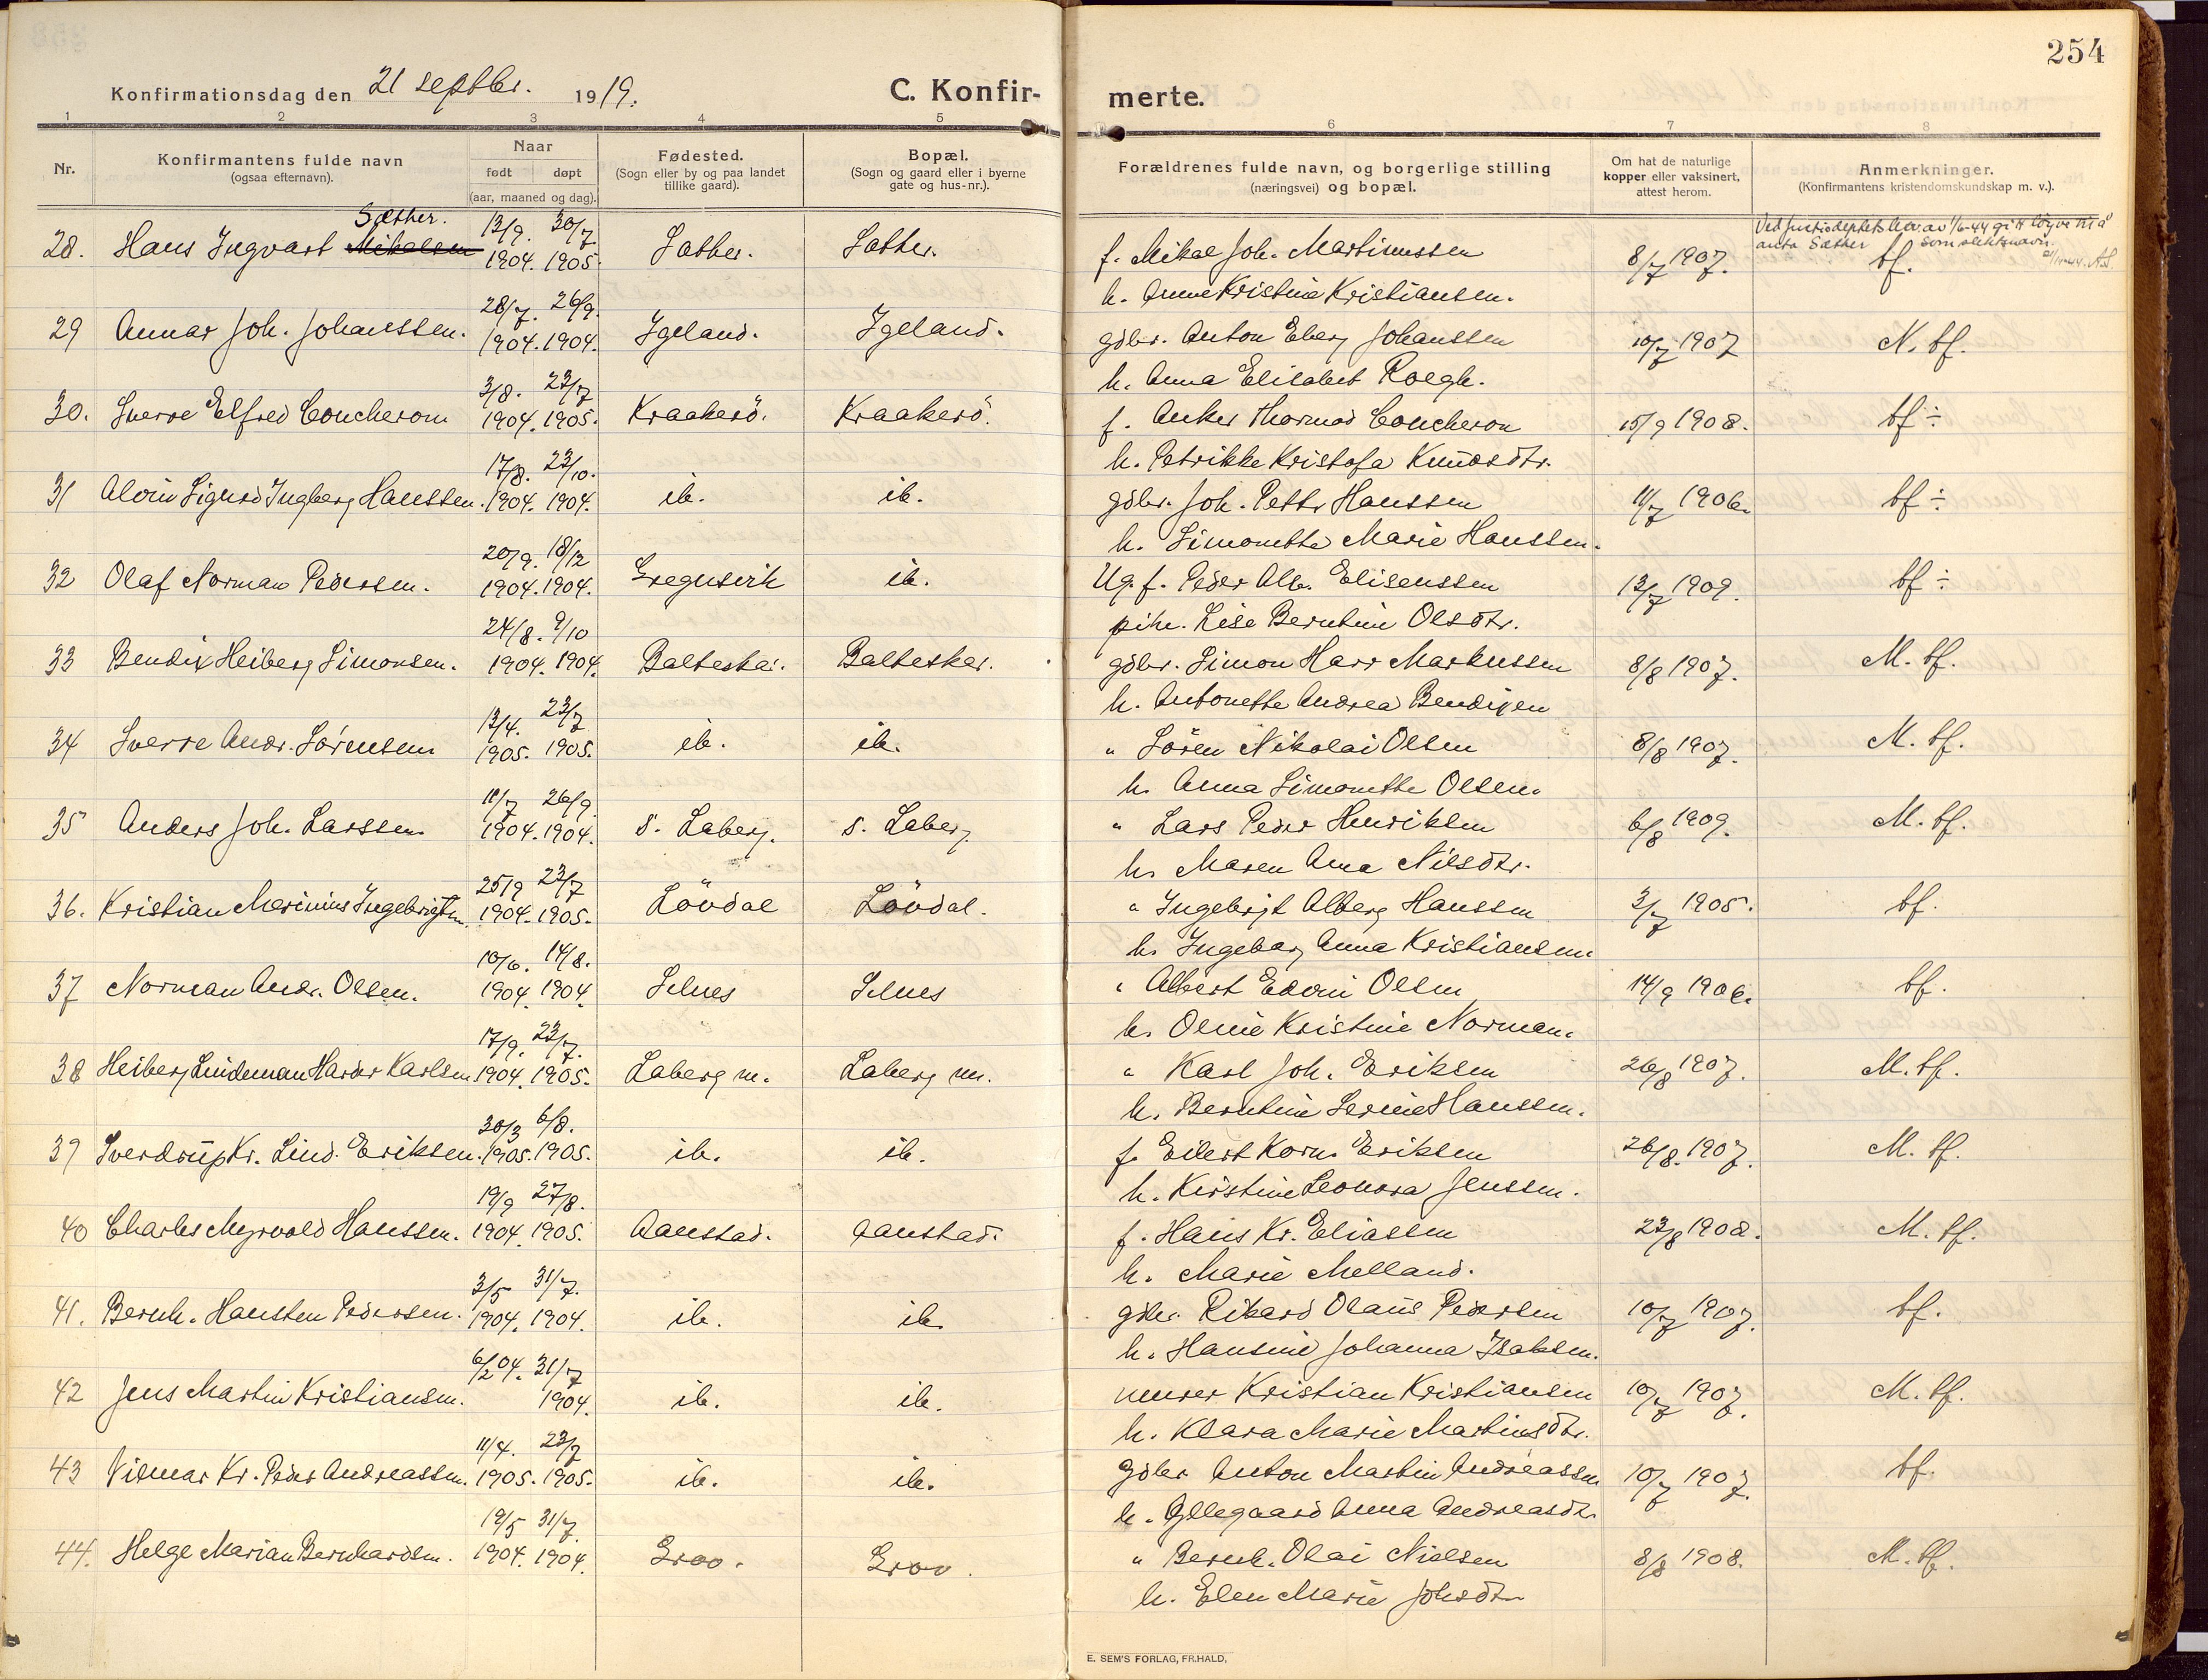 254
Konfirmationsdag den 21 septbr. 1919.
C. Konfir-
merte.
1 2 3 4 5 6 7 8
Nr.
Konfirmantens fulde navn
(ogsaa efternavn).
Naar
født døpt
(aar, maaned og dag).
Fødested.
(Sogn eller by og paa landet
tillike gaard).
Bopæl.
(Sogn og gaard eller i byerne
gate og hus-nr.).
Forældrenes fulde navn, og borgerlige stilling
(næringsvei) og bopæl.
Om hat de naturlige
kopper eller vaksinert,
attest herom.
Anmerkninger.
(Konfirmantens kristendomskundskap m. v.).
Sæther. 13/9. 30/7 Ved justisdeptets bev. av 1/6-44 gitt løyve til å
anta Sæther som slektsnavn.
28. Hans Ingvart Mikalsen 1904. 1905. Sæther. Sæther. f. Mikal Joh. Martinussen 8/7 1907. bf.
h. Anne Kristine Kristiansen.
28/7. 26/9.
29 Annar Joh. Johanssen. 1904. 1904. Igeland. Igeland. gdbr. Anton Eberg Johanssen 10/7 1907 N. bf.
h. Anna Elisabet Roegh.
3/8. 23/7
30. Sverre Elfred Coucheron 1904. 1905. Kraakerö. Kraakerö. f. Anker Thormod Coucheron 15/9 1908. bf ÷
h. Petrikke Kristofa Knudsdtr.
17/8. 23/10.
31 Alvin Sigurd Ingberg Hanssen. 1904. 1904. ib. ib. gdbr. Joh. Petter Hanssen 11/7 1906. bf ÷
h. Simonette Marie Hanssen.
20/9. 18/12
32 Olaf Norman Pedersen. 1904. 1904. Gregusvik ib. Ug. f. Peder Alb. Elisenssen 13/7 1909. bf ÷
pike. Lise Berntine Olsdtr.
24/8. 9/10
33 Bendix Heiberg Simonsen. 1904. 1904. Balteskar. Balteskar. gdbr. Simon Harr Markussen 8/8 1907. M. bf.
h. Antonette Andrea Bendixen
13/4. 23/7
34 Sverre Andr. Sörensen 1905. 1905. ib. ib. " Sören Nikolai Olsen 8/8 1907. M. bf.
h. Anna Simonette Olsen.
11/7 26/9.
35 Anders Joh. Larssen 1904. 1904. s. Laberg. s. Laberg " Lars Peder Henriksen 6/8 1909. M. bf.
h. Maren Ana Nilsdtr.
25/9 23/7
36. Kristian Marinius Ingebrigtsen. 1904. 1905. Lövdal Lövdal. " Ingebrigt Alberg Hanssen 3/7 1905. bf.
h. Ingeborg Anna Kristiansen.
10/6. 14/8.
37 Norman Andr. Olsen. 1904. 1904. Selnes Selnes " Albert Edvin Olsen 14/9 1906. bf.
h. Oline Kristine Norman.
17/9. 23/7.
38 Heiberg Lindeman Harder Karlsen 1904. 1905. Laberg m. Laberg m. " Karl Joh. Eriksen 26/8 1907. M. bf.
h. Berntine Serine Hanssen.
30/3 6/8.
39 Sverdrup Kr. Lind. Eriksen. 1905. 1905. ib. ib. f. Eilert Korn. Eriksen 26/8. 1907. M. bf.
h. Kirstine Leonora Jenssen.
19/9 27/8.
40 Charles Myrvold Hanssen. 1904. 1905. Aanstad. Aanstad. f. Hans Kr. Eliassen 23/8 1908. M. bf.
h. Marie Melland.
3/5 31/7.
41. Bernh. Hansten Pedersen. 1904. 1904. ib. ib. gdbr. Rikard Olaus Pedersen 10/7 1907. bf.
h. Hansine Johanna Isaksen.
6/2 04. 31/7
42 Jens Martin Kristiansen. 1904. ib. ib. murer Kristian Kristiansen 10/7 1907. M. bf.
h. Klara Marie Martinsdtr.
11/4. 23/7
43 Vilmar Kr. Peder Andreassen. 1905. 1905. ib. ib. Gdbr Anton Martin Andreassen 10/7 1907. bf.
h. Ollegaard Anna Andreasdtr
19/5 31/7.
44. Helge Marian Bernhardsen. 1904. 1904. Grov. Grov. " Bernh. Olai Nielsen 8/8 1908. M. bf.
h. Elen Marie Johsdtr
E. SEM'S FORLAG, FR.HALD.